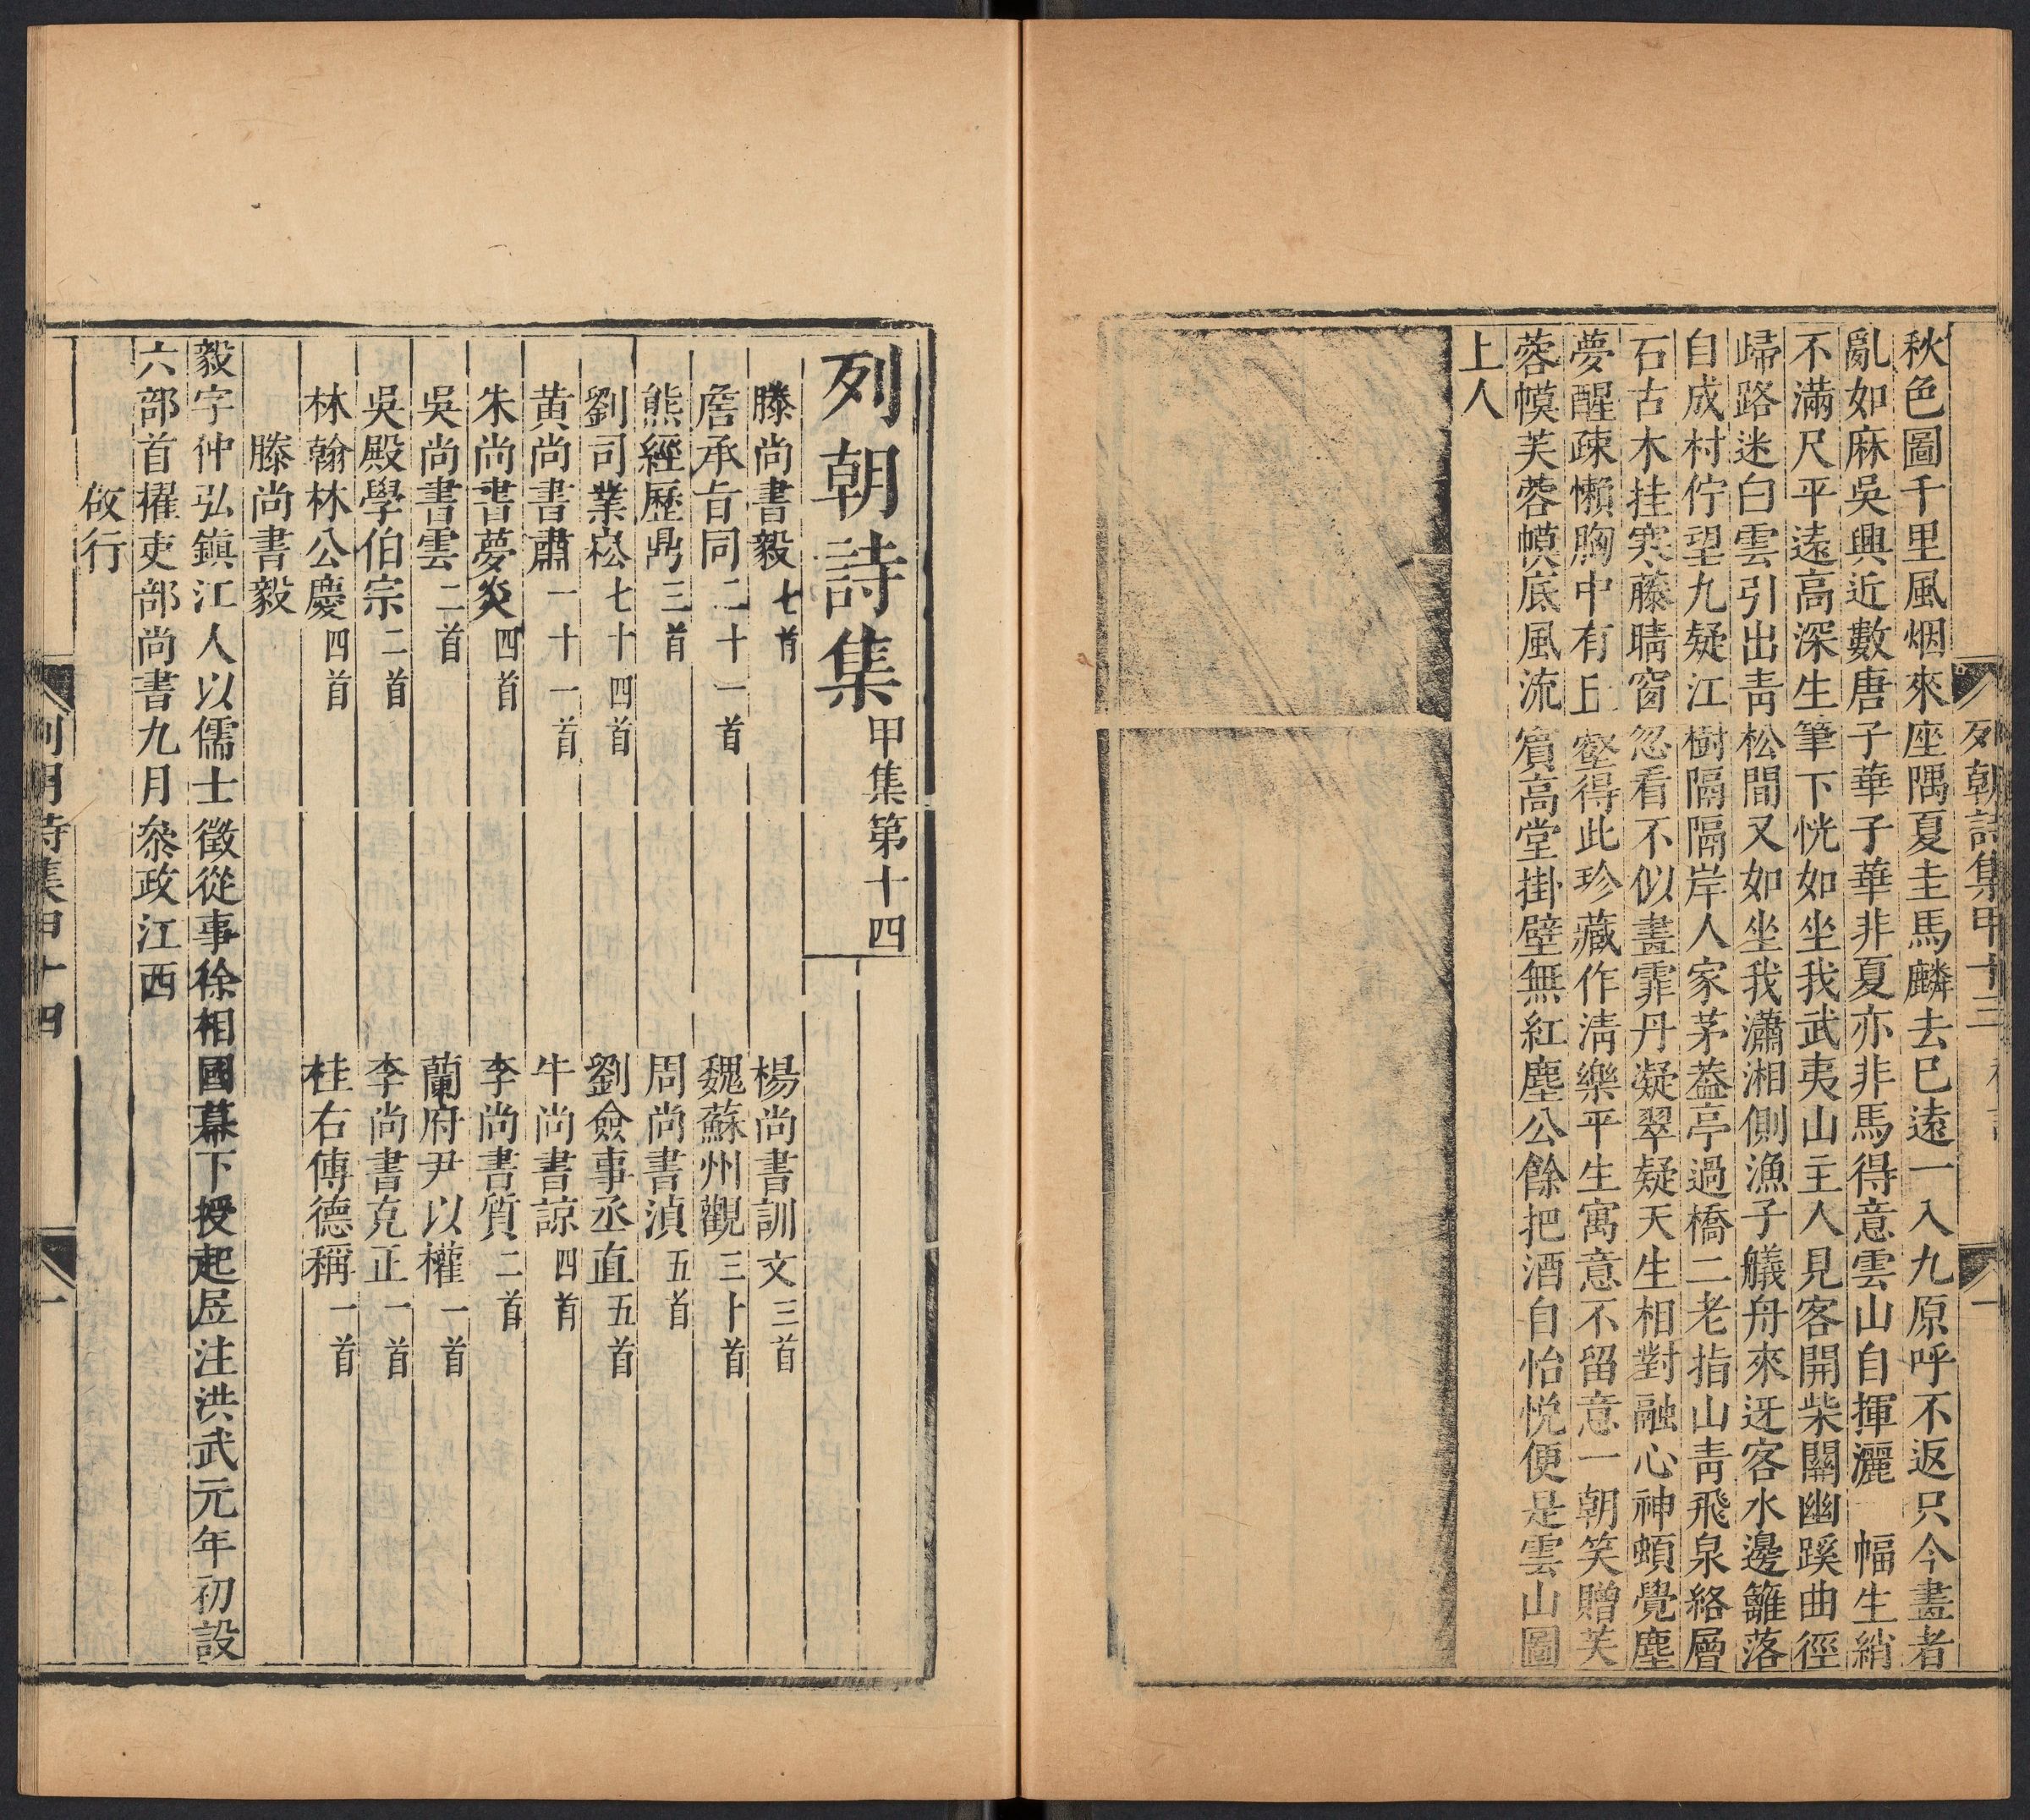 列朝詩集甲十三
秋色圖千里風烟來座隅夏圭馬麟去已遠一入九原呼不返只今畫者
亂如麻吳興近數唐子華子華非夏亦非馬得意雲山自揮灑一幅生綃
不滿尺平遠高深生筆下恍如坐我武夷山主人見客開柴關幽蹊曲徑
歸路迷白雲引出青松間又如坐我瀟湘側漁子艤舟來迓客水邊籬落
自成村佇望九疑江樹隔隔岸人家茅葢亭過橋二老指山青飛泉絡層
石古木挂寒藤睛窗忽看不似畫霏丹凝翠疑天生相對融心神頓覺塵
夢醒疎懶胸中有丘壑得此珍藏作清樂平生寓意不留意一朝笑贈芙
蓉幙芙蓉幙底風流賔高堂掛壁無紅塵公餘把酒自怡悅便是雲山圖
上人
列朝詩集甲集第十四
滕尚書毅七首 楊尚書訓文三首
詹承旨同二十一首 魏蘇州觀三十首
熊經歷鼎三首 周尚書湞五首
劉司業崧七十四首 劉僉事丞直五首
黄尚書肅一十一首 牛尚書諒四首
朱尚書夢炎四首 李尚書質二首
吳尚書雲二首 蘭府尹以權一首
吳殿學伯宗二首 李尚書克正一首
林翰林公慶四首 桂右傅德稱一首
滕尚書毅
毅字仲弘鎮江人以儒士徵從事徐相國幕下授起居注洪武元年初設
六部首擢吏部尚書九月叅政江西
倣行
列朝詩集甲十四 一